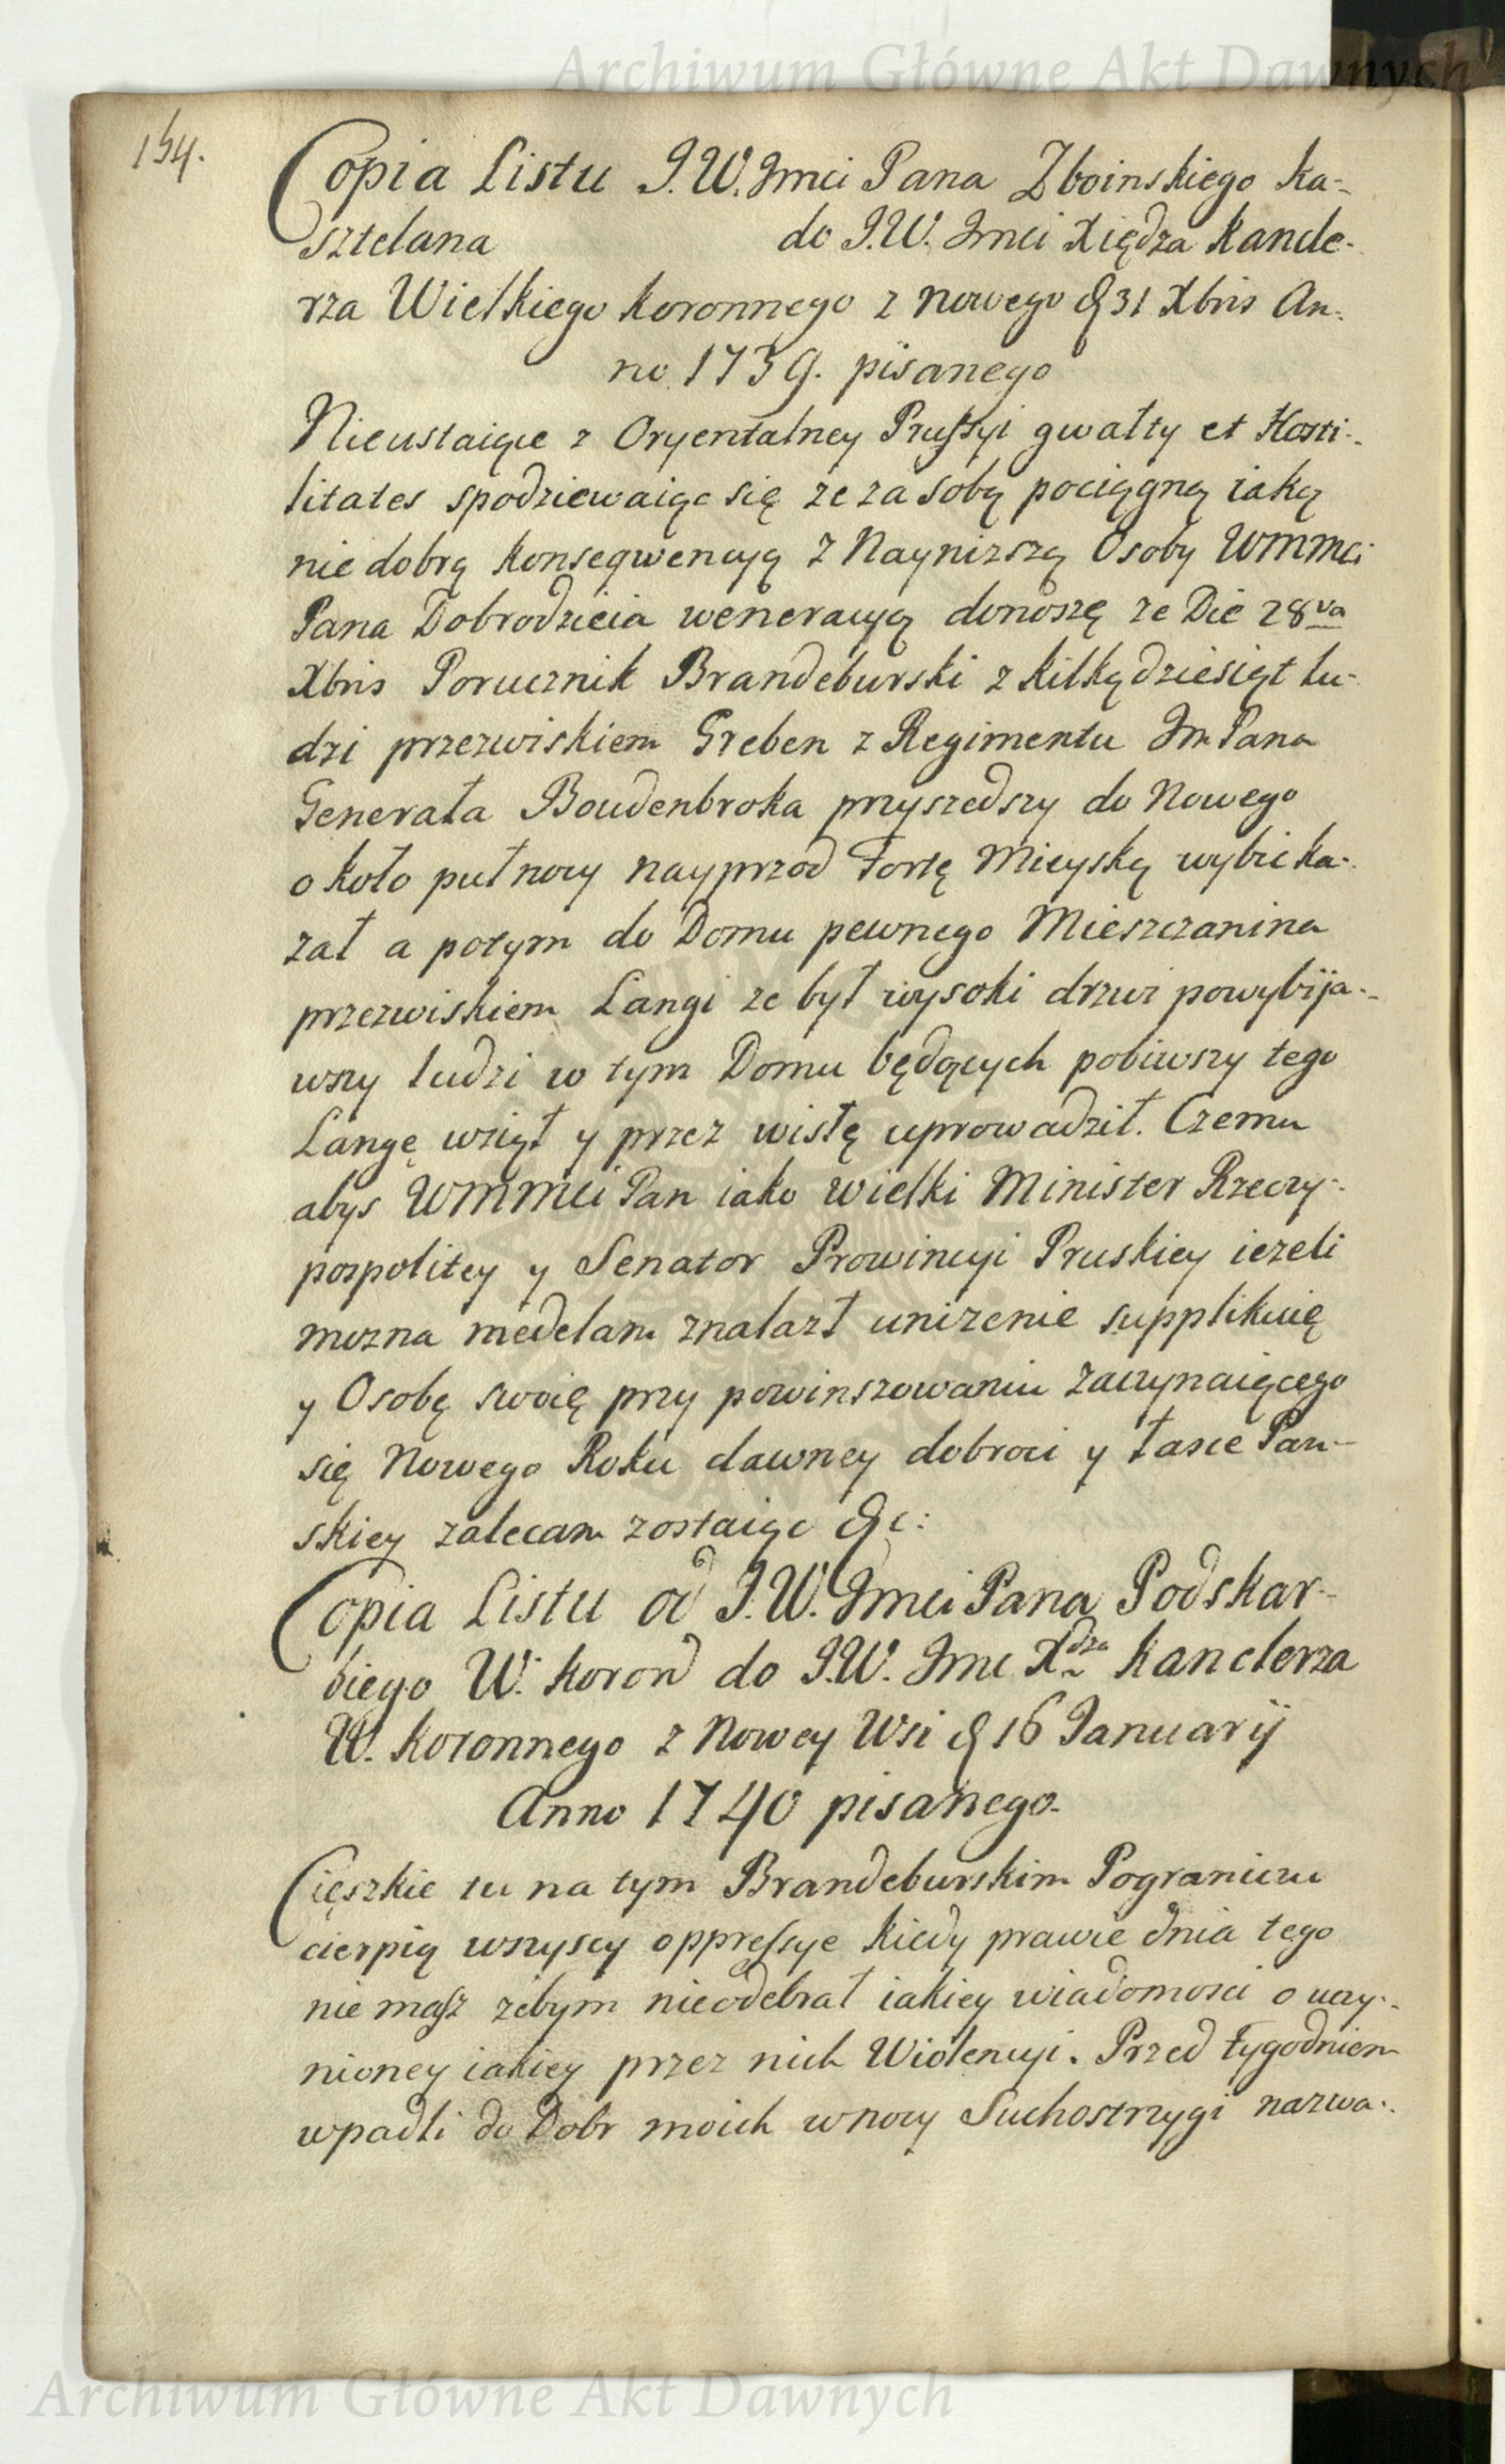 Archiwum Główne Akt Dawnych
154.
Copia Listu J.W. Jmci Pana Zboinskiego Ka-
sztelana do J.W. Jmci Xiędza Kancle-
rza Wielkiego Koronnego z Nowego d 31 Xbris An-
no 1739. pisanego
Nieustaiące z Oryentalney Prussyi gwałty et Hosti-
litates spodziewaiąc się ze za sobą pociągną iaką
nie dobrą konseqwencyą z Nayniższą Osoby WMMci
Pana Dobrodzieia weneracyą donoszę ze Die 28va
Xbris Porucznik Brandeburski z kilkądziesiąt lu-
dzi przezwiskiem Greben z Regimentu Jm Pana
Generała Boudenbroka przyszedszy do Nowego
około puł nocy nayprzod Fortę Mieyską wybic ka-
zał a potym do Domu pewnego Mieszczanina
przezwiskiem Langi ze był wysoki drzwi powybija-
wszy ludzi w tym Domu będących pobiwszy tego
Langę wziął y przez wisłę uprowadził. Czemu
abys WMMci Pan iako wielki Minister Rzeczy-
pospolitey y Senator Prowincyi Pruskiey iezeli
mozna medelam znalazł unizenie supplikuię
y Osobę swoię przy powinszowaniu zaczynaiącego
się Nowego Roku dawney dobroci y łasce Pan-
skiey zalecam zostaiąc &c:
Copia Listu od J.W. Jmci Pana Podskar-
biego W. Koron do J.W. Jmc Xdza Kanclerza
W. Koronnego z Nowey Wsi d 16 Januarij
Anno 1740 pisanego.
Cięszkie tu na tym Brandeburskim Pograniczu
cierpią wszyscy oppressye kiedy prawie dnia tego
nie masz zebym nieodebrał iakiey wiadomosci o uczy-
nioney iakiey przez nich Wiolencyi. Przed tygodniem
wpadli do Dobr moich w nocy Suchostrzygi nazwa-
Archiwum Główne Akt Dawnych